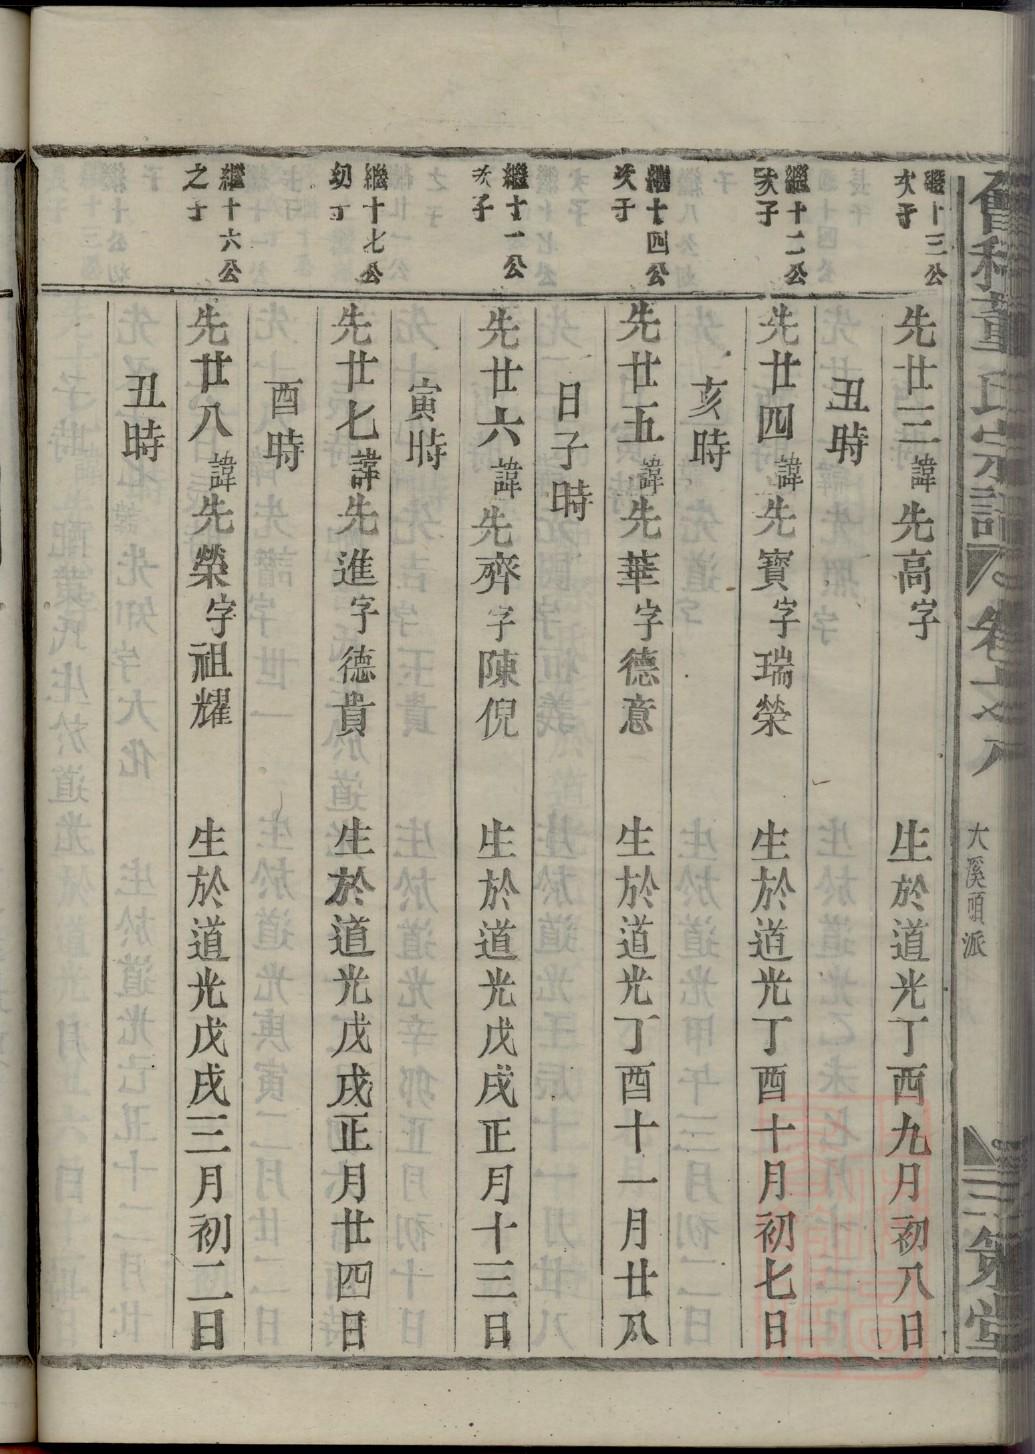 會稽董氏宗譜
卷
大溪頭派
三策堂
繼十三公
次子
先廿三諱先高字
生於道光丁酉九月初八日
丑時
繼十二公
次子
先廿四諱先寶字瑞榮
生於道光丁酉十月初七日
亥時
繼十四公
次子
先廿五諱先華字德意
生於道光丁酉十一月廿八
日子時
繼十一公
次子
先廿六諱先齊字陳倪
生於道光戊戌正月十三日
寅時
繼十七公
幼子
先廿七諱先進字德貴
生於道光戊戌正月廿四日
酉時
繼十六公
之子
先廿八諱先榮字祖耀
生於道光戊戌三月初二日
丑時